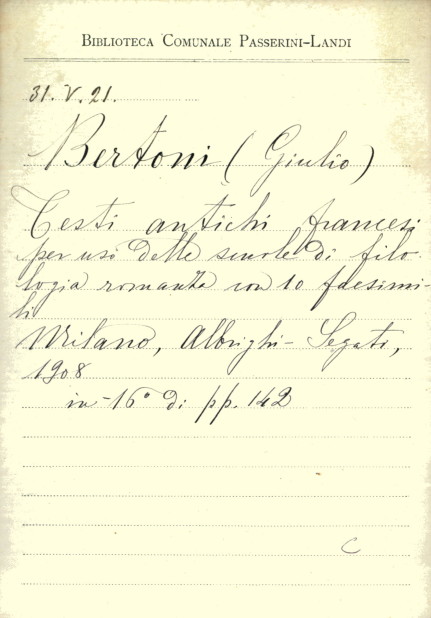 BIBLIOTECA COMUNALE PASSERINI-LANDI
31. V. 21.
Bertoni (Giulio)
Testi antichi francesi
per uso delle scuole di filo-
logia romanza con 10 facsimi-
li
Milano, Albrighi-Segati,
1908
in-16° di pp. 142
C